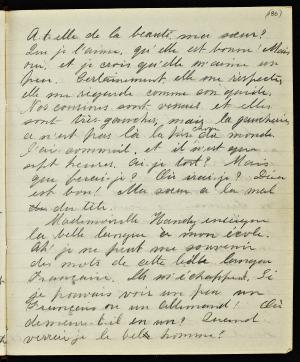 (86)
A-t-elle de la beauté, ma sœur?
Que je l'aime, qu'elle est bonne! Mais
oui, et je crois qu'elle m'aime un
peu. Certainement, elle me respecte,
elle me regarde comme son guide.
Nos cousines sont venues, et elles
sont très gauches, mais la gaucherie
ce n'est pas là la pis chose du monde.
J'ai sommeil, et il n'est que
sept heures. Ai-je tort? Mais
que ferai-je? Où irai-je? Dieu
est bon! Ma sœur a la mal
de tête.
Mademoiselle Handy enseigne
la belle langue à mon école.
Ah! je ne peut me souvenir
des mots de cette belle langue
Française. Ils m'échappent. Si
je pouvais voir un peu un
Français ou un Allemand! Où
demeure-t-il en un? Quand
verrai-je le bel homme?